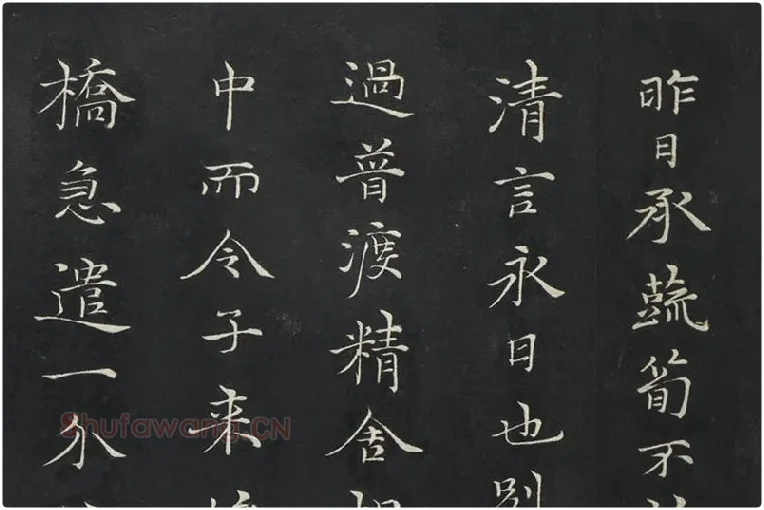 昨日承蔬筍不
清言永日也別
過普渡精舍
中而令子来
橋急遣一介
Shufawang.CN